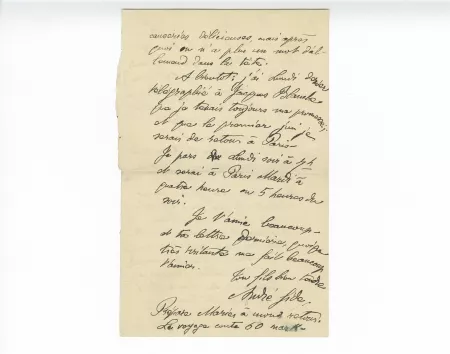 causeries délicieuses, mais après
quoi on n'a plus un mot d'al-
lemand dans la tête.
A bientôt; j'ai lundi dernier
télégraphié à Jacques Blanche
que je tenais toujours ma promesse,
et que le premier juin je
serais de retour à Paris
Je pars lundi soir à
et serai à Paris Mardi à
quatre heure ou 5 heures du
soir.
Je t'aime beaucoup
et ta lettre dernière, quoique
très irritante m'a fait beaucoup
t'aimer.
Ton fils bien tendre
André Gide.
Prépare Marie à mon retour.
Le voyage coûte 60 mark